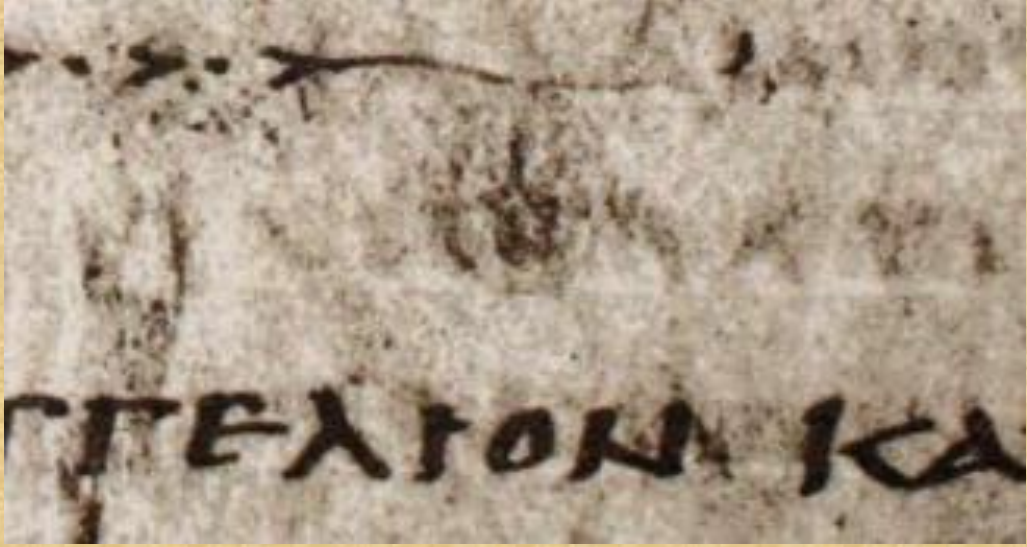 ΓΓΕΛΙΟΝ ΚΑ